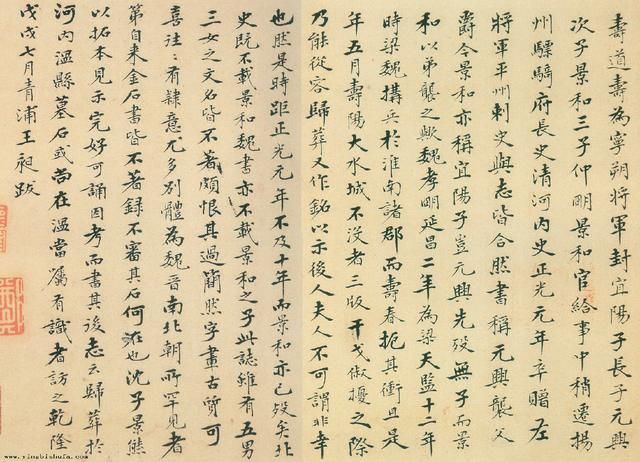 壽道壽為寧朔將軍封宜陽子長子元興
次子景和三子仲明景和官給事中稍遷揚
州驃騎府長史清河內史正光元年卒贈左
將軍平州刺史與志皆合然書稱元興襲父
爵今景和亦稱宜陽子豈元興先歿無子而景
和以弟襲之歟魏孝明延昌二年為梁天監十二年
時梁魏搆兵於淮南諸郡而壽春扼其衝且是
年五月壽陽大水城不沒者三版干戈俶擾之際
乃能從容歸葬又作銘以示後人夫人不可謂非幸
也然是時距正光元年不及十年而景和亦已歿矣北
史既不載景和魏書亦不載景和之子此誌雖有五男
三女之文名皆不著頗恨其過簡然字畫古質可
喜往往有隸意尤多別體為魏晉南北朝所罕見者
第自來金石書皆不著錄不審其石何在也沈子景熊
以拓本見示完好可誦因考而書其後志云歸葬於
河內溫縣墓石或尚在溫當屬有識者訪之乾隆
戊戌七月青浦王昶跋
www.yingbishufa.com